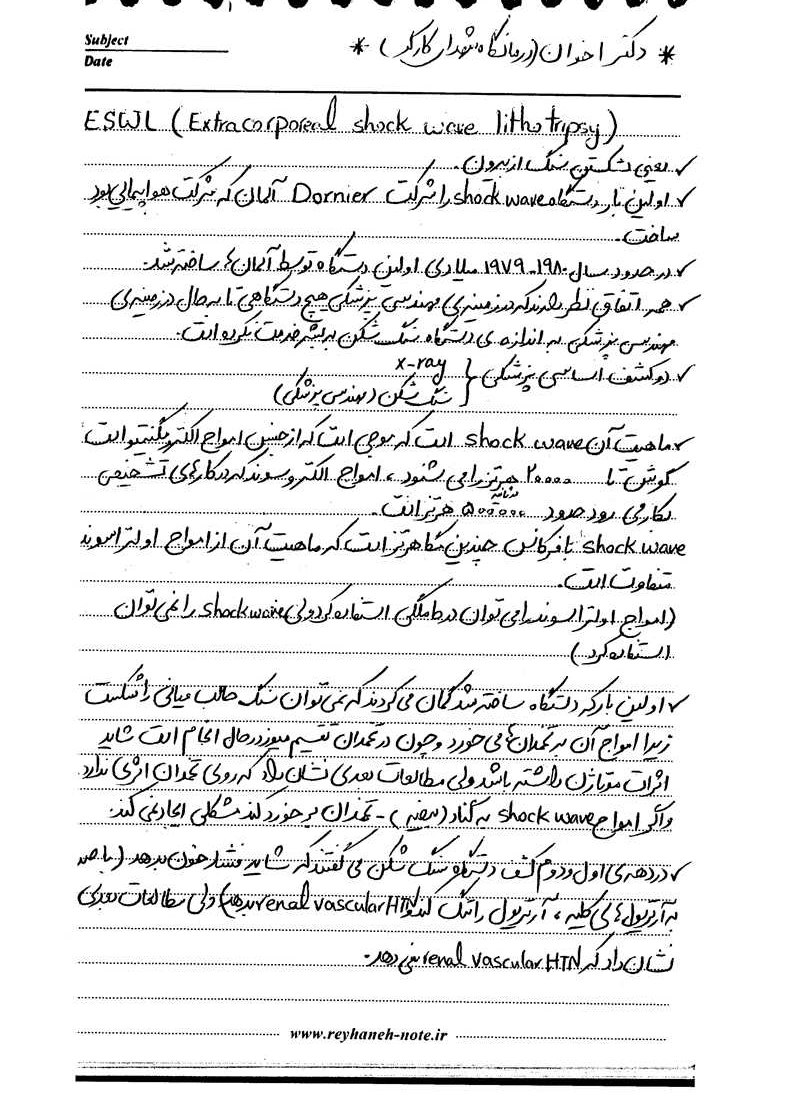 * دکتر اخوان (درمانگاه شهدای کارگر) *
Subject
Date
ESWL (Extracorporeal shock wave lithotripsy)
✓ یعنی شکستن سنگ از بیرون.
✓ اولین بار دستگاه shock wave را شرکت Dornier آلمان که شرکت هواپیمایی بود
ساخت.
✓ در حدود سال ۱۹۸۰-۱۹۷۹ میلادی اولین دستگاه توسط آلمان‌ها ساخته شد.
✓ همه اتفاق نظر دارند که در زمینه‌ی مهندسی پزشکی هیچ دستگاهی تا به حال در زمینه‌ی
مهندسی پزشکی به اندازه‌ی دستگاه سنگ شکن به بشر خدمت نکرده است.
✓ دو کشف اساسی پزشکی { x-ray
سنگ شکن (مهندسی پزشکی)
✓ ماهیت آن shock wave است که موجی است که از جنس امواج الکترومگنتیو است
گوش تا ۲۰۰۰۰ هرتز را می شنود، امواج الکتروسوند که در کارهای تشخیصی
بکار می رود حدود هرتز است.
shock wave با فرکانس چندین مگاهرتز است که ماهیت آن از امواج اولتراسوند
متفاوت است.
(امواج اولتراسوند را می توان در حاملگی استفاده کرد ولی shock wave را نمی توان
استفاده کرد)
✓ اولین بار که دستگاه ساخته شد گمان می کردند که نمی توان سنگ حالب میانی را شکست
زیرا امواج آن به تخمدان‌ها می خورد و چون در تخمدان تقسیم میوز در حال انجام است شاید
اثرات موتاژن داشته باشد ولی مطالعات بعدی نشان داد که روی تخمدان اثری ندارد
و اگر امواج shock wave به گناد (بیضه) - تخمدان برخورد کند مشکلی ایجاد نمی کند.
✓ در دهه‌ی اول و دوم کشف دستگاه سنگ شکن می گفتند که شاید فشار خون بدهد (با صدمه
به آرتریول‌های کلیه، آرتریول را تنگ کند و renal vascular HTN بدهد) ولی مطالعات بعدی
نشان داد که renal vascular HTN نمی دهد.
www.reyhaneh-note.ir